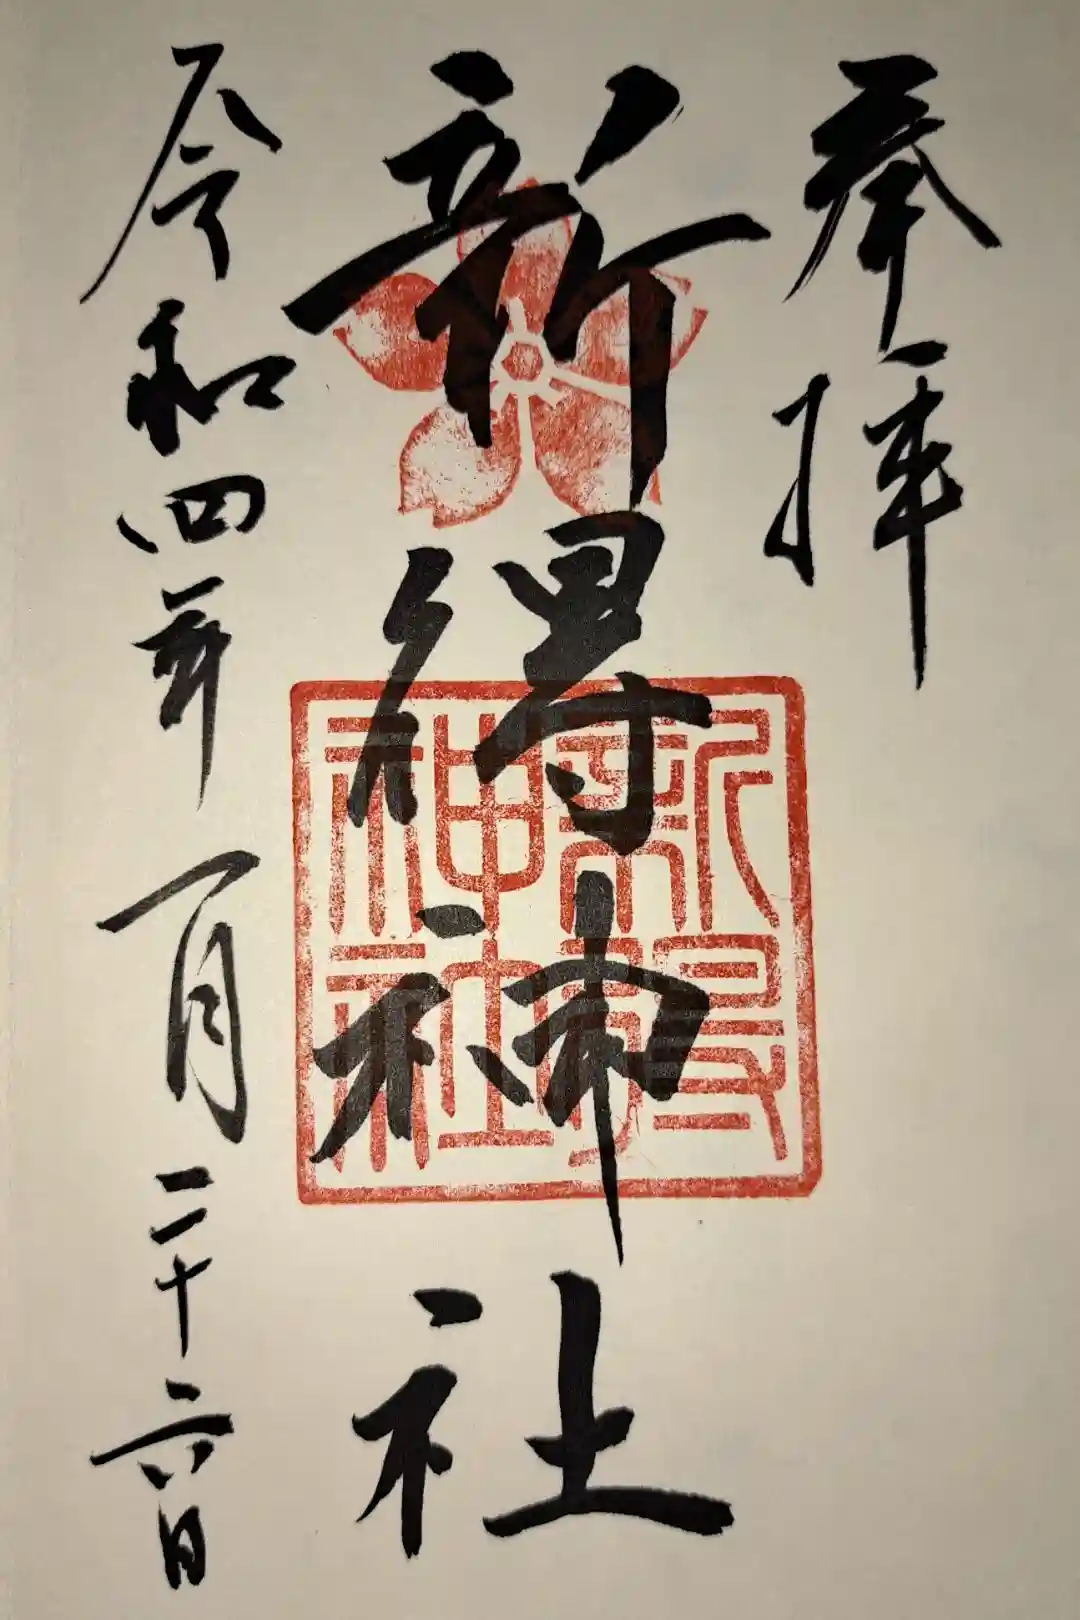 奉拝
新得神社
新得
神社
令和四年一月二十六日